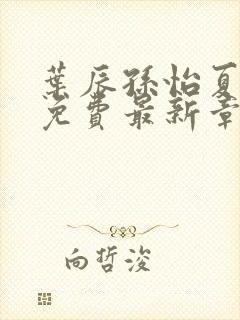 葉辰孫怡夏
免費最新章
向哲浚